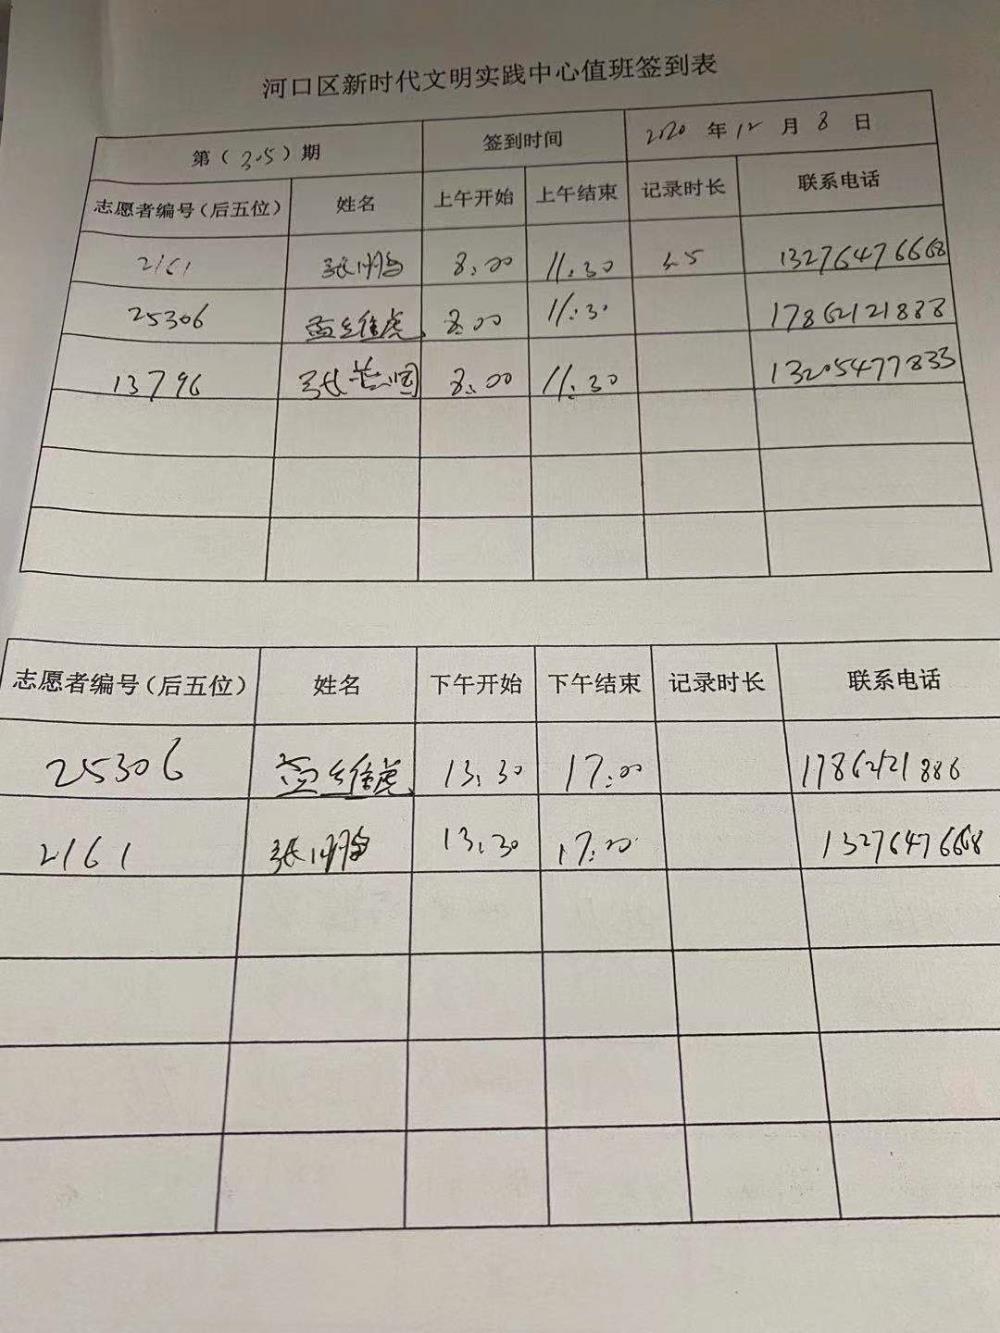 河口区新时代文明实践中心值班签到表
第（305）期 签到时间 2020年12月8日
志愿者编号（后五位） 姓名 上午开始 上午结束 记录时长 联系电话
2161 8:00 11:30 13276476668
25306 孟维虎 8:00 11:30 17862121888
13796 8:00 11:30 13205477833
志愿者编号（后五位） 姓名 下午开始 下午结束 记录时长 联系电话
25306 孟维虎 13:30 17:00 17862121886
2161 13:30 17:00 13276476668